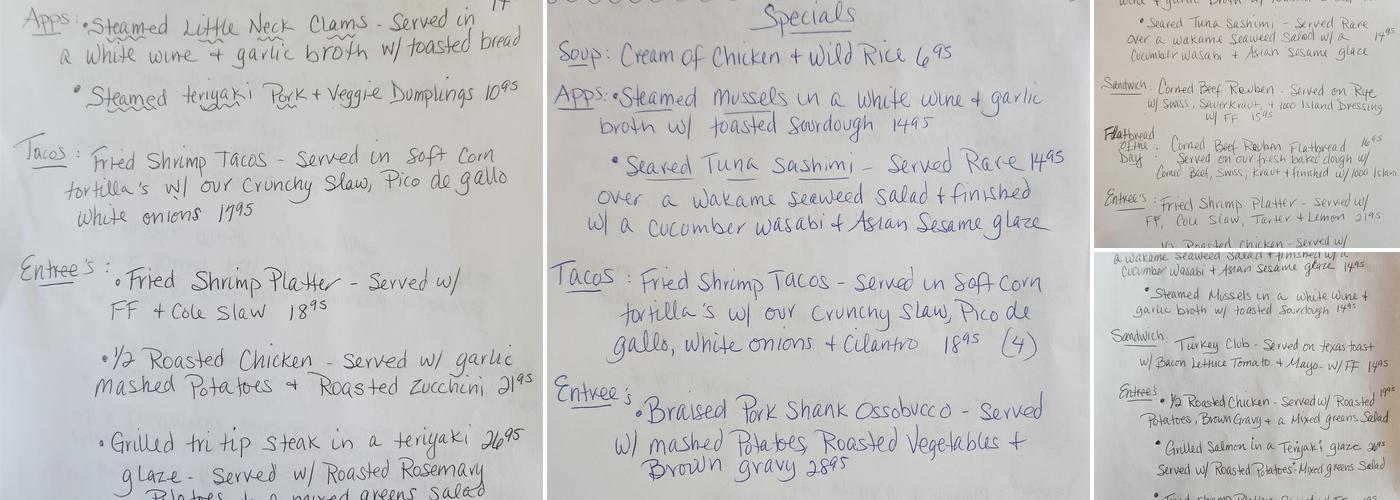 Apps: • Steamed Little Neck Clams - Served in
a white wine + garlic broth w/ toasted bread
• Steamed teriyaki Pork + Veggie Dumplings 10⁹⁵
Tacos: Fried Shrimp Tacos - Served in Soft Corn
tortilla's w/ our Crunchy Slaw, Pico de gallo
white onions 17⁹⁵
Entree's: • Fried Shrimp Platter - Served w/
FF + Cole Slaw 18⁹⁵
• 1/2 Roasted Chicken - Served w/ garlic
mashed Potatoes + Roasted Zucchini 21⁹⁵
• Grilled tri tip steak in a teriyaki 26⁹⁵
glaze - Served w/ Roasted Rosemary
mixed greens salad
Specials
Soup: Cream of Chicken + Wild Rice 6⁹⁵
Apps: • Steamed Mussels in a white wine + garlic
broth w/ toasted Sourdough 14⁹⁵
• Seared Tuna Sashimi - Served Rare 14⁹⁵
over a wakame seaweed salad + finished
w/ a cucomber wasabi + Asian Sesame glaze
Tacos: Fried Shrimp Tacos - Served in Soft Corn
tortilla's w/ our Crunchy Slaw, Pico de
gallo, white onions + Cilantro 18⁹⁵ (4)
Entree's • Braised Pork Shank Ossobucco - Served
w/ mashed Potatoes, Roasted Vegetables +
Brown gravy 28⁹⁵
• Seared Tuna Sashimi - Served Rare
over a wakame Seaweed Salad w/ a 14⁹⁵
Cucumber wasabi + Asian Sesame glaze
Sandwich: Corned Beef Reuben - Served on Rye
w/ Swiss, Sauerkraut, + 1000 Island Dressing
w/ FF 15⁹⁵
Flatbread of the Day: Corned Beef Reuben Flatbread 16⁹⁵
Served on our fresh baked dough w/
Corned Beef, Swiss, Kraut + finished w/ 1000 Island
Entree's: Fried Shrimp Platter - served w/
FF, Cole Slaw, Tarter + Lemon 21⁹⁵
1/2 Roasted Chicken - Served w/
a wakame Seaweed Salad + finished w/ a
Cucumber Wasabi + Asian Sesame glaze 14⁹⁵
• Steamed Mussels in a white wine +
garlic broth w/ toasted Sourdough 14⁹⁵
Sandwich: Turkey Club - Served on texas toast
w/ Bacon Lettuce Tomato + Mayo - w/ FF 14⁹⁵
Entree's • 1/2 Roasted Chicken - Served w/ Roasted 19⁹⁵
Potatoes, Brown Gravy + a Mixed greens Salad
• Grilled Salmon in a Teriyaki glaze 26⁹⁵
Served w/ Roasted Potatoes - Mixed greens Salad